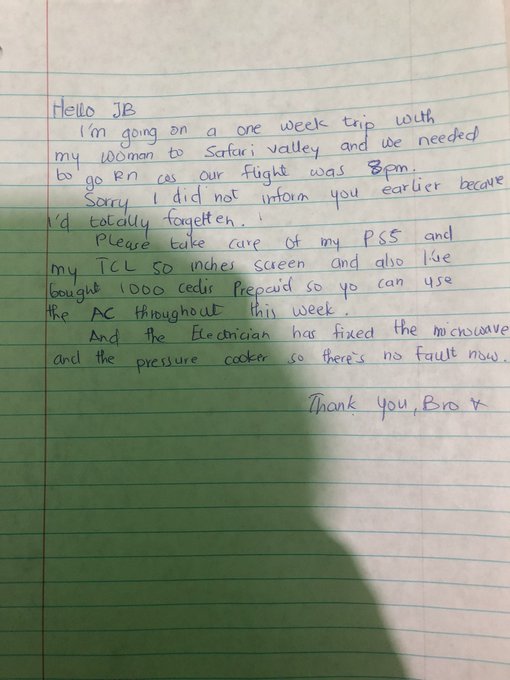 Hello JB
I'm going on a one week trip with
my woman to Safari valley and we needed
to go Rn cos our flight was 8pm.
Sorry I did not inform you earlier because
I'd totally forgetten.
Please take care of my PS5 and
my TCL 50 inches screen and also I've
bought 1000 cedis Prepaid so yo can use
the AC throughout this week.
And the Electrician has fixed the microwave
and the pressure cooker so there's no fault now.
Thank you, Bro